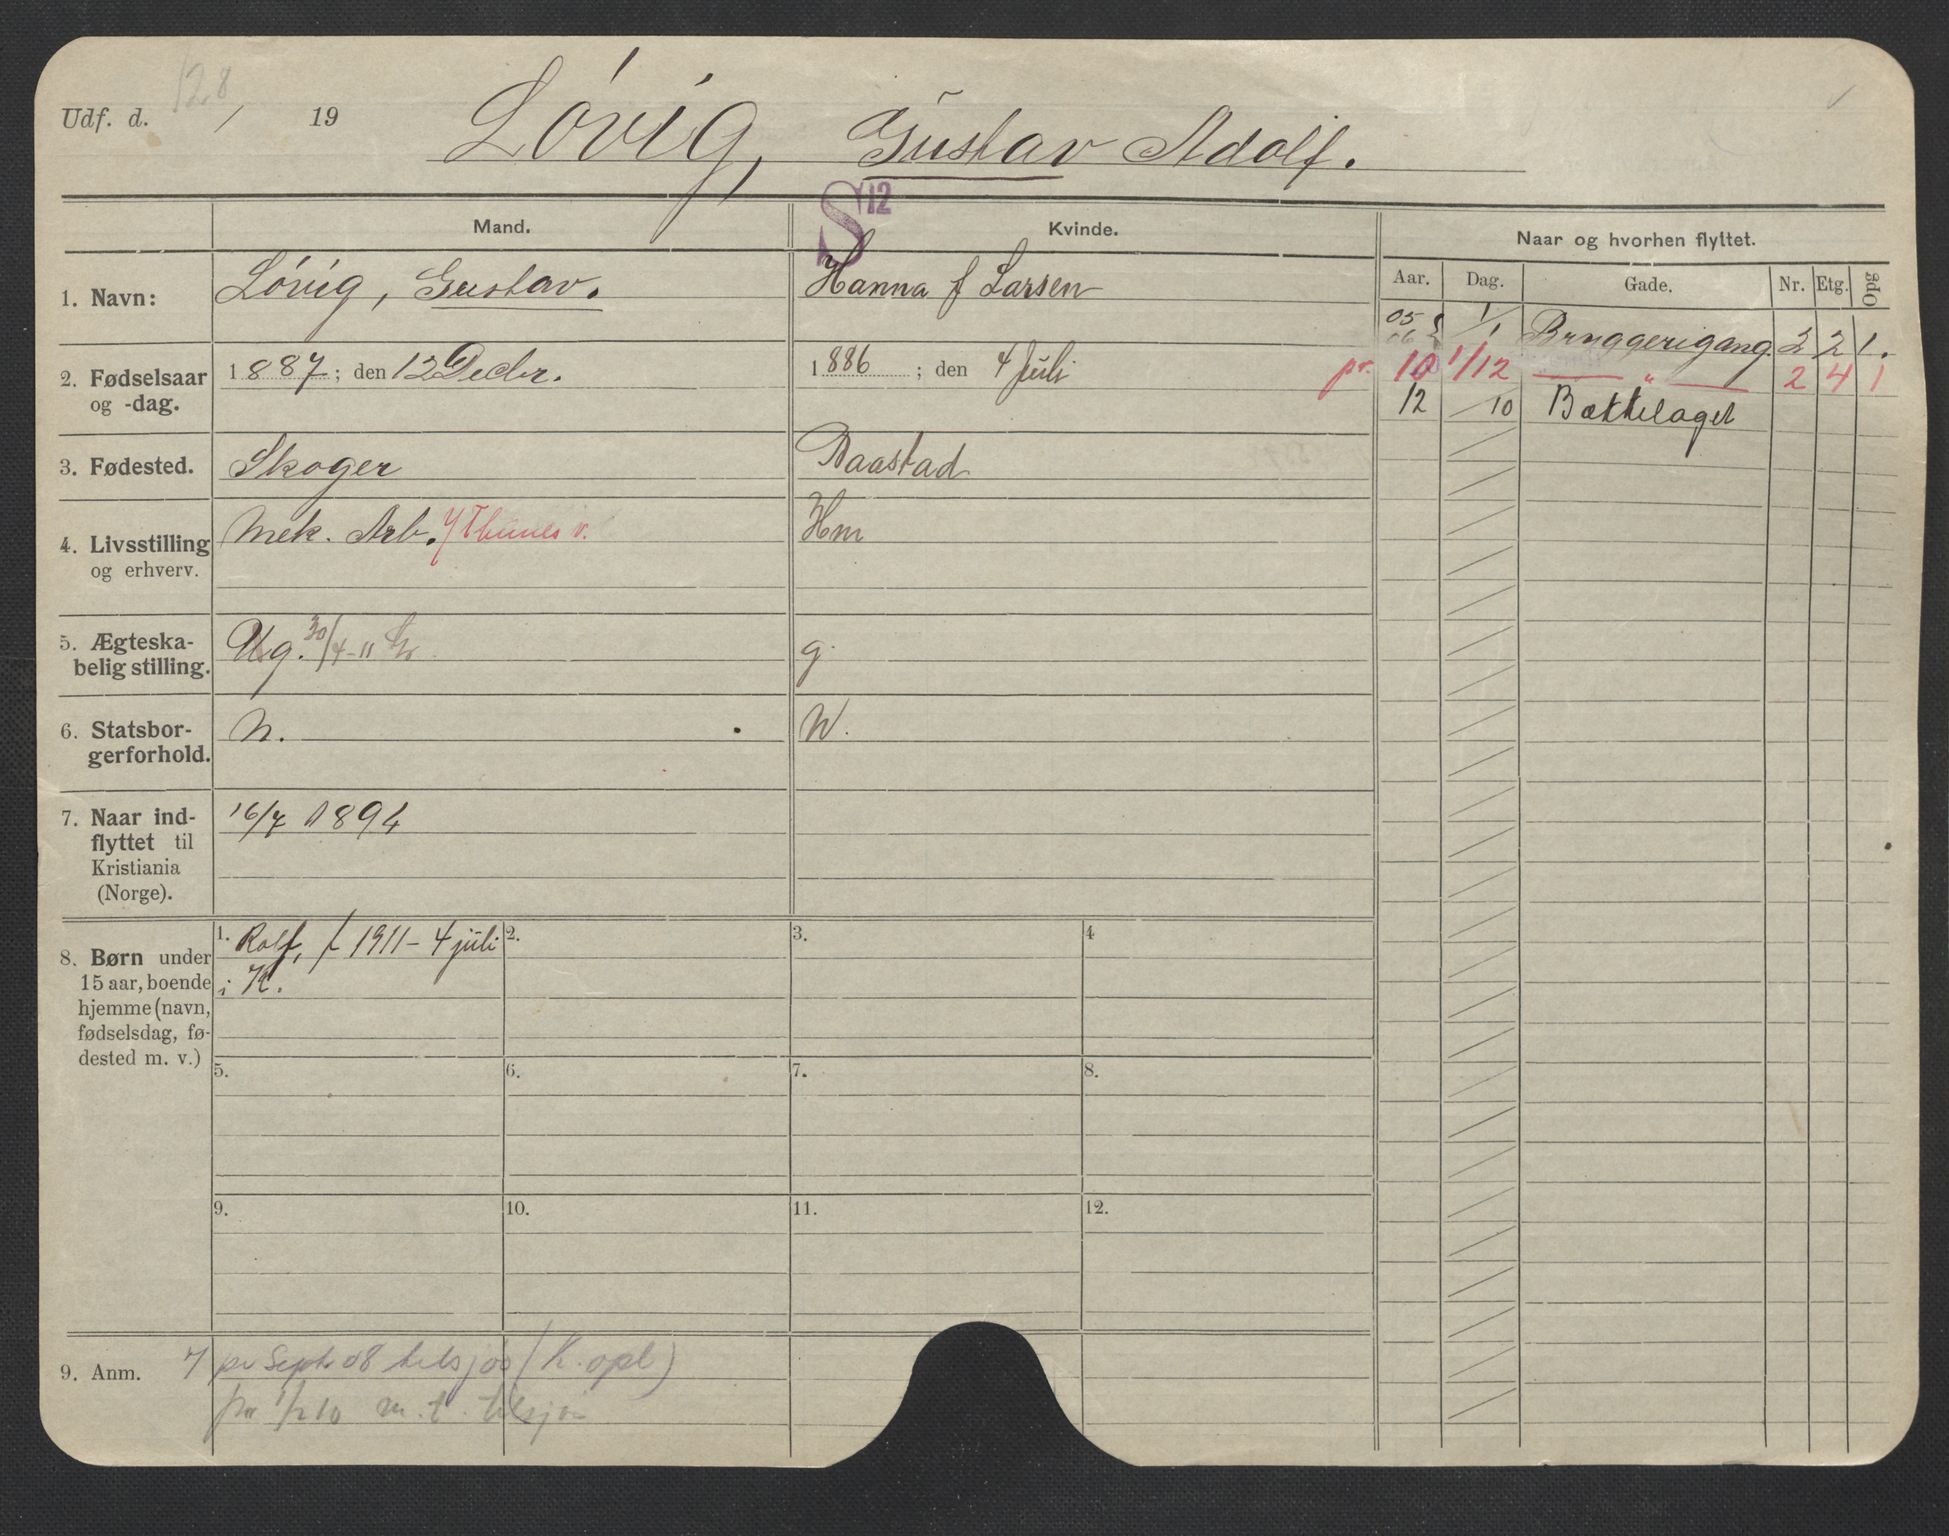 128
Udf. d. / 19
Løvig, Gustav Adolf.
S 12
Mand.
Kvinde.
Naar og hvorhen flyttet.
Aar. Dag. Gade. Nr. Etg. Opg
1. Navn:
Løvig, Gustav.
Hanna f Larsen
05 1/1 Bryggerigang. 2 2 1.
06
pr. 10 1/12 — " — 2 4 1
12 /10 Bækkelaget
2. Fødselsaar
og -dag.
1887; den 12 Decbr.
1886 ; den 4 Juli
3. Fødested.
Skoger
Raastad
4. Livsstilling
og erhverv.
Mek. Arb. v/ Thunes v.
Hm
5. Ægteska-
belig stilling.
Ug. 30/4-11
g.
6. Statsbor-
gerforhold.
N.
N.
7. Naar ind-
flyttet til
Kristiania
(Norge).
16/7 1894
8. Børn under
15 aar, boende
hjemme (navn,
fødselsdag, fø-
dested m. v.)
1. Rolf, f 1911 – 4 juli
i K.
2.
3.
4
5.
6.
7.
8.
9.
10.
11.
12.
9. Anm.
pr Septr 08 tilsjøs (K. opl)
pr 1/12 10 m. t. tilsjøs